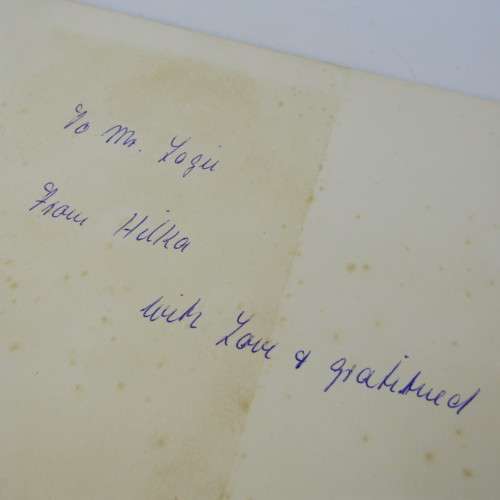 To Mr. Logie
From Hilka
with Love & gratitued